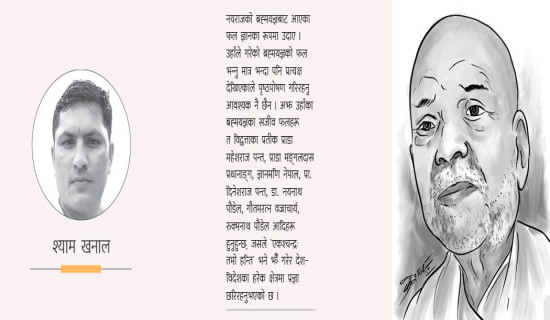 नयराजको ब्रह्मयज्ञबाट आएका
फल ज्ञानका रूपमा उदाए ।
उहाँले गरेको ब्रह्मयज्ञको फल
भन्नु मात्र भन्दा पनि प्रत्यक्ष
देखिएकाले पृष्ठपोषण गरिरहनु
आवश्यक नै छैन । अझ उहाँका
ब्रह्मयज्ञका सजीव फलहरू
त विद्वत्ताका प्रतीक प्राडा
महेशराज पन्त, प्राडा मङ्गलदास
प्रधानाङ्ग, ज्ञानमणि नेपाल, प्रा.
दिनेशराज पन्त, डा. नयनाथ
पौडेल, गौतमरत्न वज्राचार्य,
रुक्मनाथ पौडेल आदिहरू
हुनुहुन्छ, जसले 'एकश्चन्द्रः
तमो हन्ति' भने झैँ गरेर देश-
विदेशका हरेक क्षेत्रमा प्रज्ञा
छरिरहनुभएको छ ।
श्याम खनाल